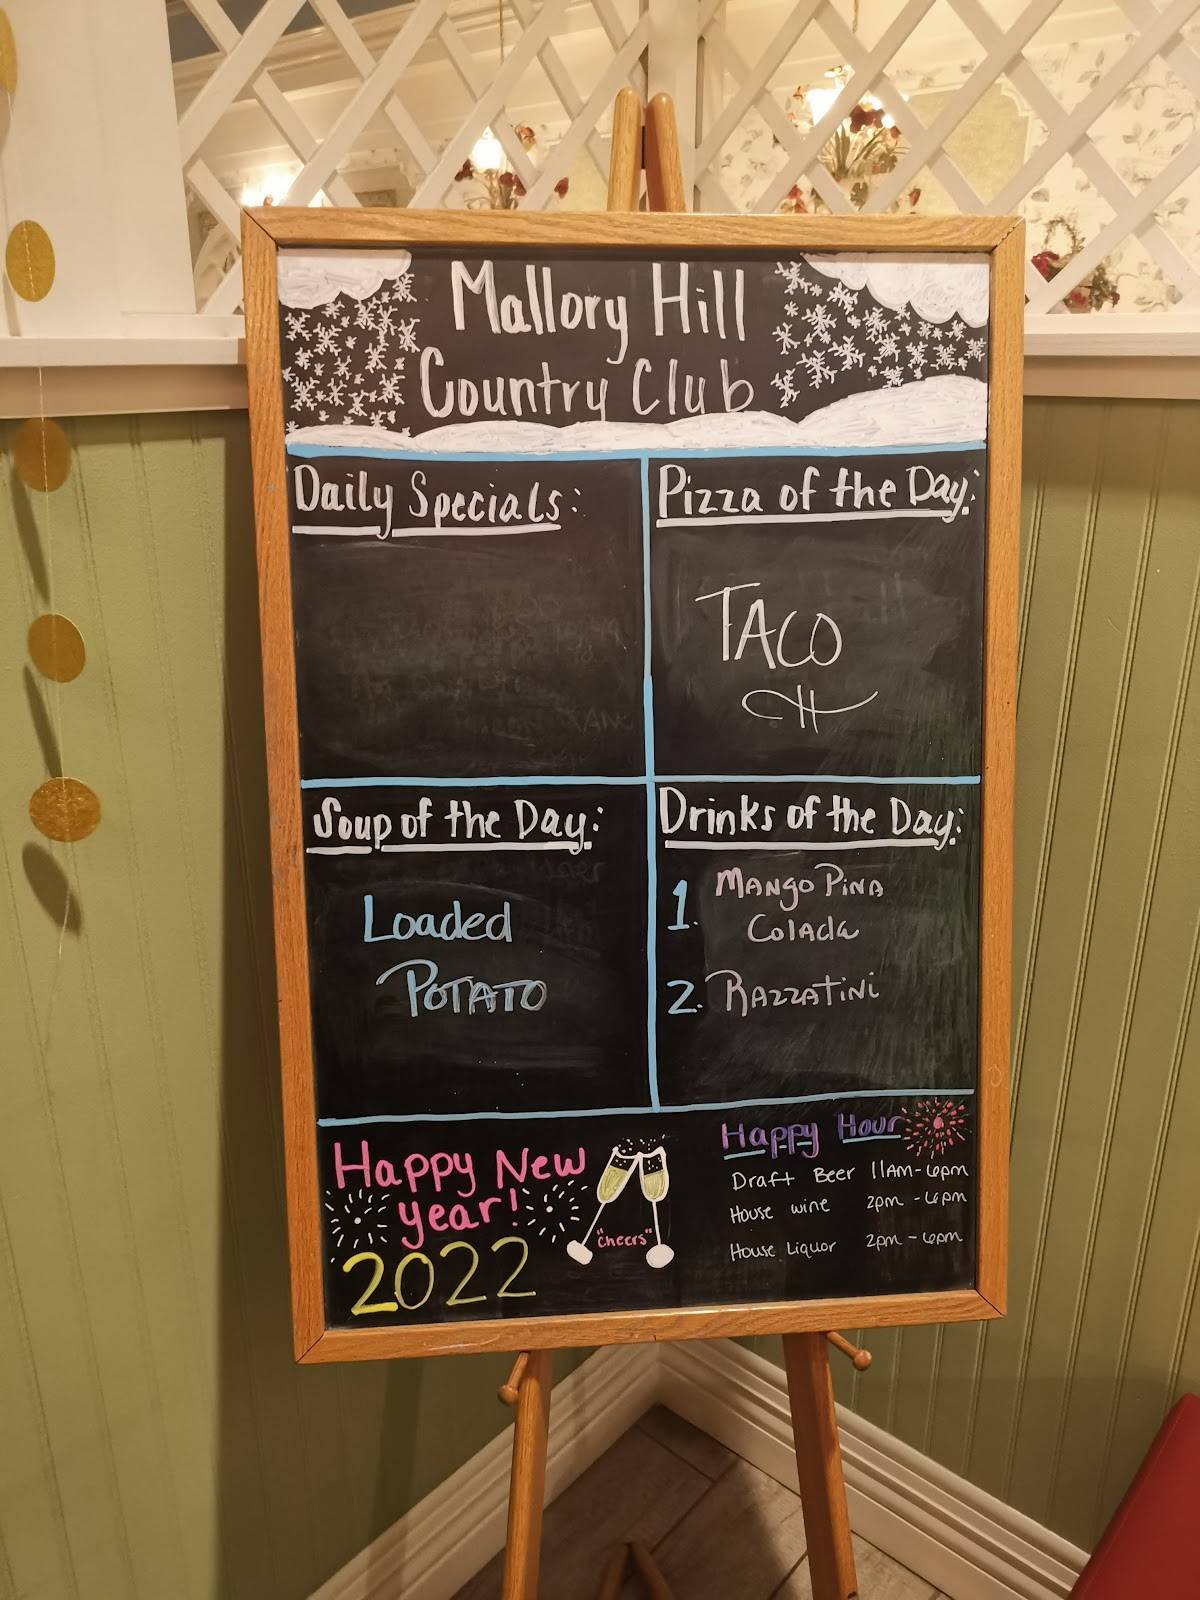 Mallory Hill
Country Club
Daily Specials:
Pizza of the Day:
TACO
Soup of the Day:
Loaded
POTATO
Drinks of the Day:
1. MANGO PINA
COlAda
2. RAZZATINI
Happy New
year!
2022
"cheers"
Happy Hour
Draft Beer 11AM-6pm
House wine 2pm - 6pm
House Liquor 2pm - 6pm